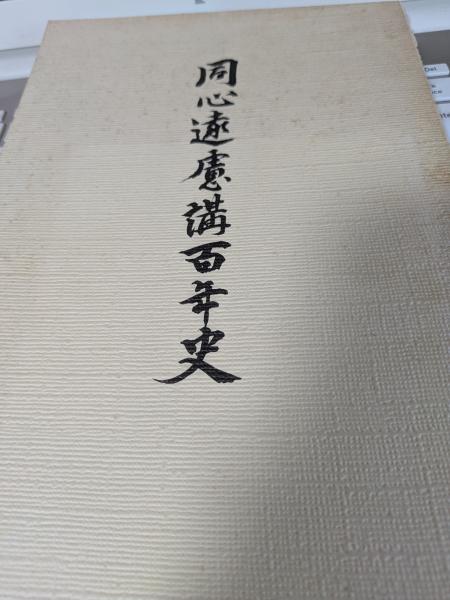 同心遠慮講百年史
Del